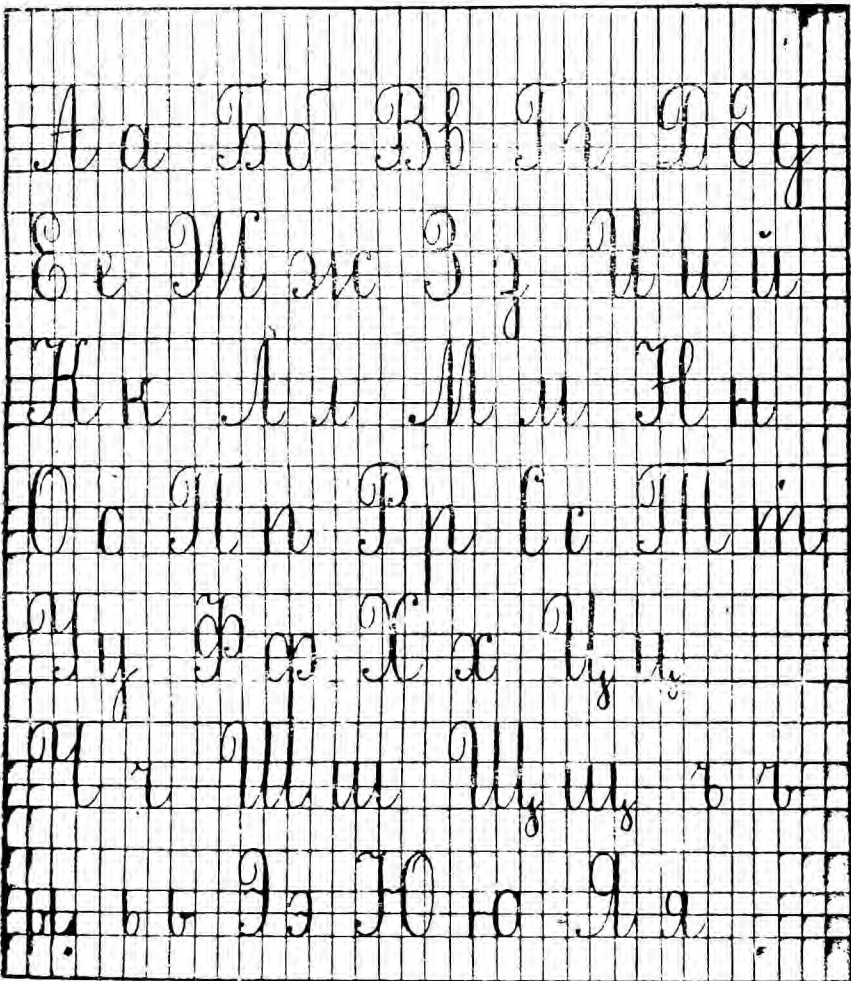 А а Б б В в Г г Д д д
Е е Ж ж З з И и й
К к Л л М м Н н
О о П п Р р С с Т т
У у Ф ф Х х Ц ц
Ч ч Ш ш Щ щ ъ ъ
ы ь ь Э э Ю ю Я я